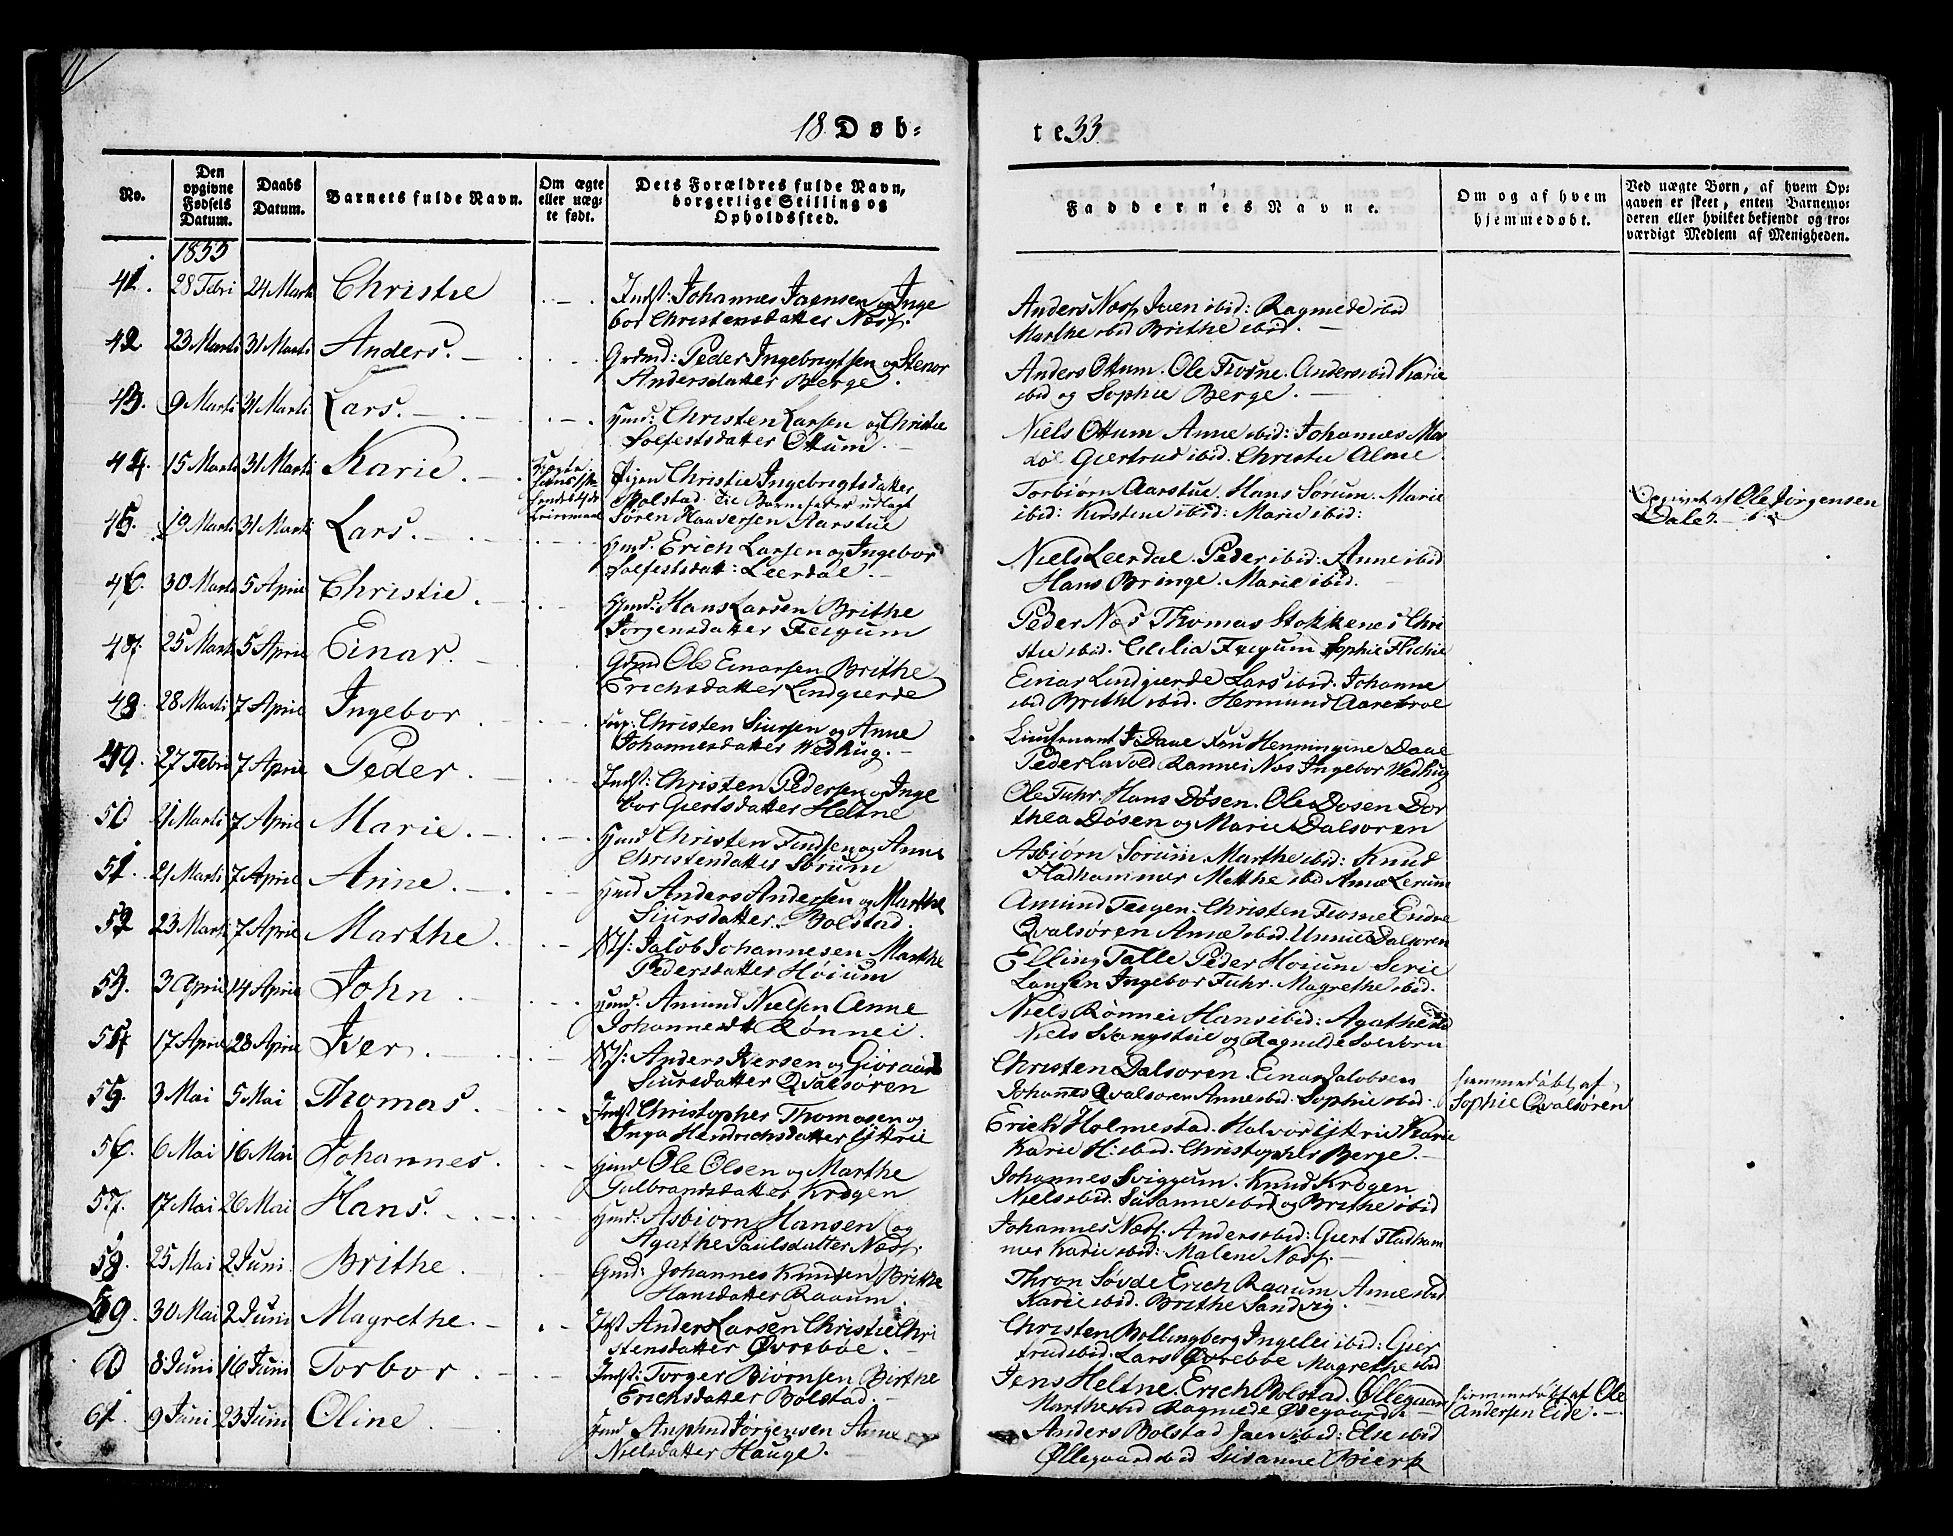 11
18 Døb-
te 33.
No.
Den opgivne Fødsels Datum.
Daabs Datum.
Barnets fulde Navn.
Om ægte eller uægte født.
Dets Forældres fulde Navn, borgerlige Stilling og Opholdssted.
Faddernes Navne.
Om og af hvem hjemmedøbt.
Ved uægte Børn, af hvem Opgaven er skeet, enten Barnemoderen eller hvilket bekjendt og troværdigt Medlem af Menigheden.
1833
41. 28 Febri 24 Marti Christie
Indst: Johannes Jaensen og Inge
bor Christensdatter Næss.
Anders Næss Iven ibid: Ragnilde ibid
Marthe ibid Brithe ibid.
42 23 Marti 31 Marti Anders.
Grdmd: Peder Ingebrigtsen og Stenor
Andersdatter Berge.
Anders Ottum. Ole Thorne. Anders ibid Karie
ibid og Sophie Berge.
43. 9 Marti 31 Marti Lars.
Hmd: Christen Larsen og Christie
Solfestsdatter Ottum
Niels Ottum Anne ibid: Johannes Mas
Giertrud ibid. Christie Alme
44. 15 Marti 31 Marti Karie.
Pigen Christie Ingebrigtsdatter
Bolstad. til Barnefader udlagt
Søren Haaversen Aarstue
Torbiørn Aarstue. Hans Sørum. Marie
ibid: Kirstine ibid: Marie ibid:
Opgivet af Ole Jørgensen
Dale
45. 19 Marti 31 Marti Lars.
Hmd. Erich Larsen og Ingebor
Solfestsdatt: Leerdal.
Niels Leerdal. Peder ibid: Anne ibid
Hans Bringe. Marie ibid.
46. 30 Marti 5 April Christie.
Hmd: Hans Larsen Brithe
Jørgensdatter Feigum
Peder Næs Thomas Stokkenes Chri
stie ibid. Cecilia Feigum Sophie
47. 25 Marti 5 April Einar.
Grmd Ole Einarsen Brithe
Erichsdatter Lindgierde
Einar Lindgierde Lars ibid. Johanne
ibid Brithe ibid. Hermund
48. 28 Marti 7 April Ingebor
Christen Siursen og Anne
Johannesdatter Wedhug.
Lieutenant J: Daae Fru Henningine Daae
Peder Rannei Næs Ingebor Wedhug
49. 27 Febri 7 April Peder.
Indst: Christen Pedersen og Inge
bor Giertsdatter Heltne
Ole Fuhr. Hans Døsen. Ole Døsen Dor
thea Døsen og Marie Dalsøren
50 21 Marti 7 April Marie.
Hmd Christen Findsen og Anne
Christensdatter Sørum
Asbiørn Sørum. Marthe ibid: Knud
Fladhammer Mitthe ibid Anne Lerum
51. 21 Marti 7 April Anne.
Hmd Anders Andersen og Marthe
Siursdatter. Bolstad.
Amund Teigen. Christen Endre
Qvalsøren Anne ibid. Unnie Dalsøren
52 23 Marti 7 April Marthe.
Jacob Johannesen Marthe
Pedersdatter Høium
Elling Talle Peder Høium Serie
Lausen Ingebor Fuhr. Magrethe ibid.
53. 3 April 14 April John
Hmd. Amund Nielsen Anne
Johannesdt Rønnei.
Niels Rønnei Hans ibid: Agathe ibid
Niels og Ragnilde Solvorn
54 17 April 28 April Iver.
Anders Iversen og
Siursdatter Qvalsøren
Christen Dalsøren. Einar Jacobsen
Johannes Qvalsøren Anne ibid. Sophie ibid.
hjemmedøbt af
Sophie Qvalsøren
55. 3 Mai 5 Mai Thomas.
Indst: Christopher Thomasen og
Inga Hendrichsdatter Yttrie
Erich Holmestad. Halvor Yttrie Karie
Karie H: ibid. Christopher Berge.
56. 6 Mai 16 Mai Johannes.
Hmd Ole Olsen og Marthe
Gulbrandsdatter Krogen
Johannes Sviggum. Knud Krogen
Niels ibid. Susanne ibid og Brithe ibid
57. 17 Mai 26 Mai Hans.
Hmd: Asbiørn Hansen og
Agathe Paulsdatter Næss.
Johannes Næss. Anders ibid: Giert Fladham
mer Karie ibid: Malene Næss.
58. 25 Mai 2 Juni Brithe.
Gmd: Johannes Knudsen Brithe
Hansdatter Raaum.
Thron Søvde Erich Raaum Anne ibid
Karie ibid. Brithe Sandvig.
59. 30 Mai 2 Juni Magrethe.
Inst Anders Larsen Christie Chri
stensdatter Øvrebøe.
Christen Bollingberg Ingelei ibid: Gier
trud ibid. Lars Øvrebøe Magrethe ibid
60 8 Juni 16 Juni Torbor.
Indst: Torger Biørnsen Birthe
Erichsdatter Bolstad
Jens Heltne. Erich Bolstad. Øllegaard
Marthe ibid Ragnilde
hjemmedøbt af Ole
Andersen Eide.
61. 9 Juni 23 Juni Oline
Hmd Jørgensen Anne
Nielsdatter Hauge.
Anders Bolstad Jaen ibid: Else ibid
Øllegaard ibid Susanne Bierk